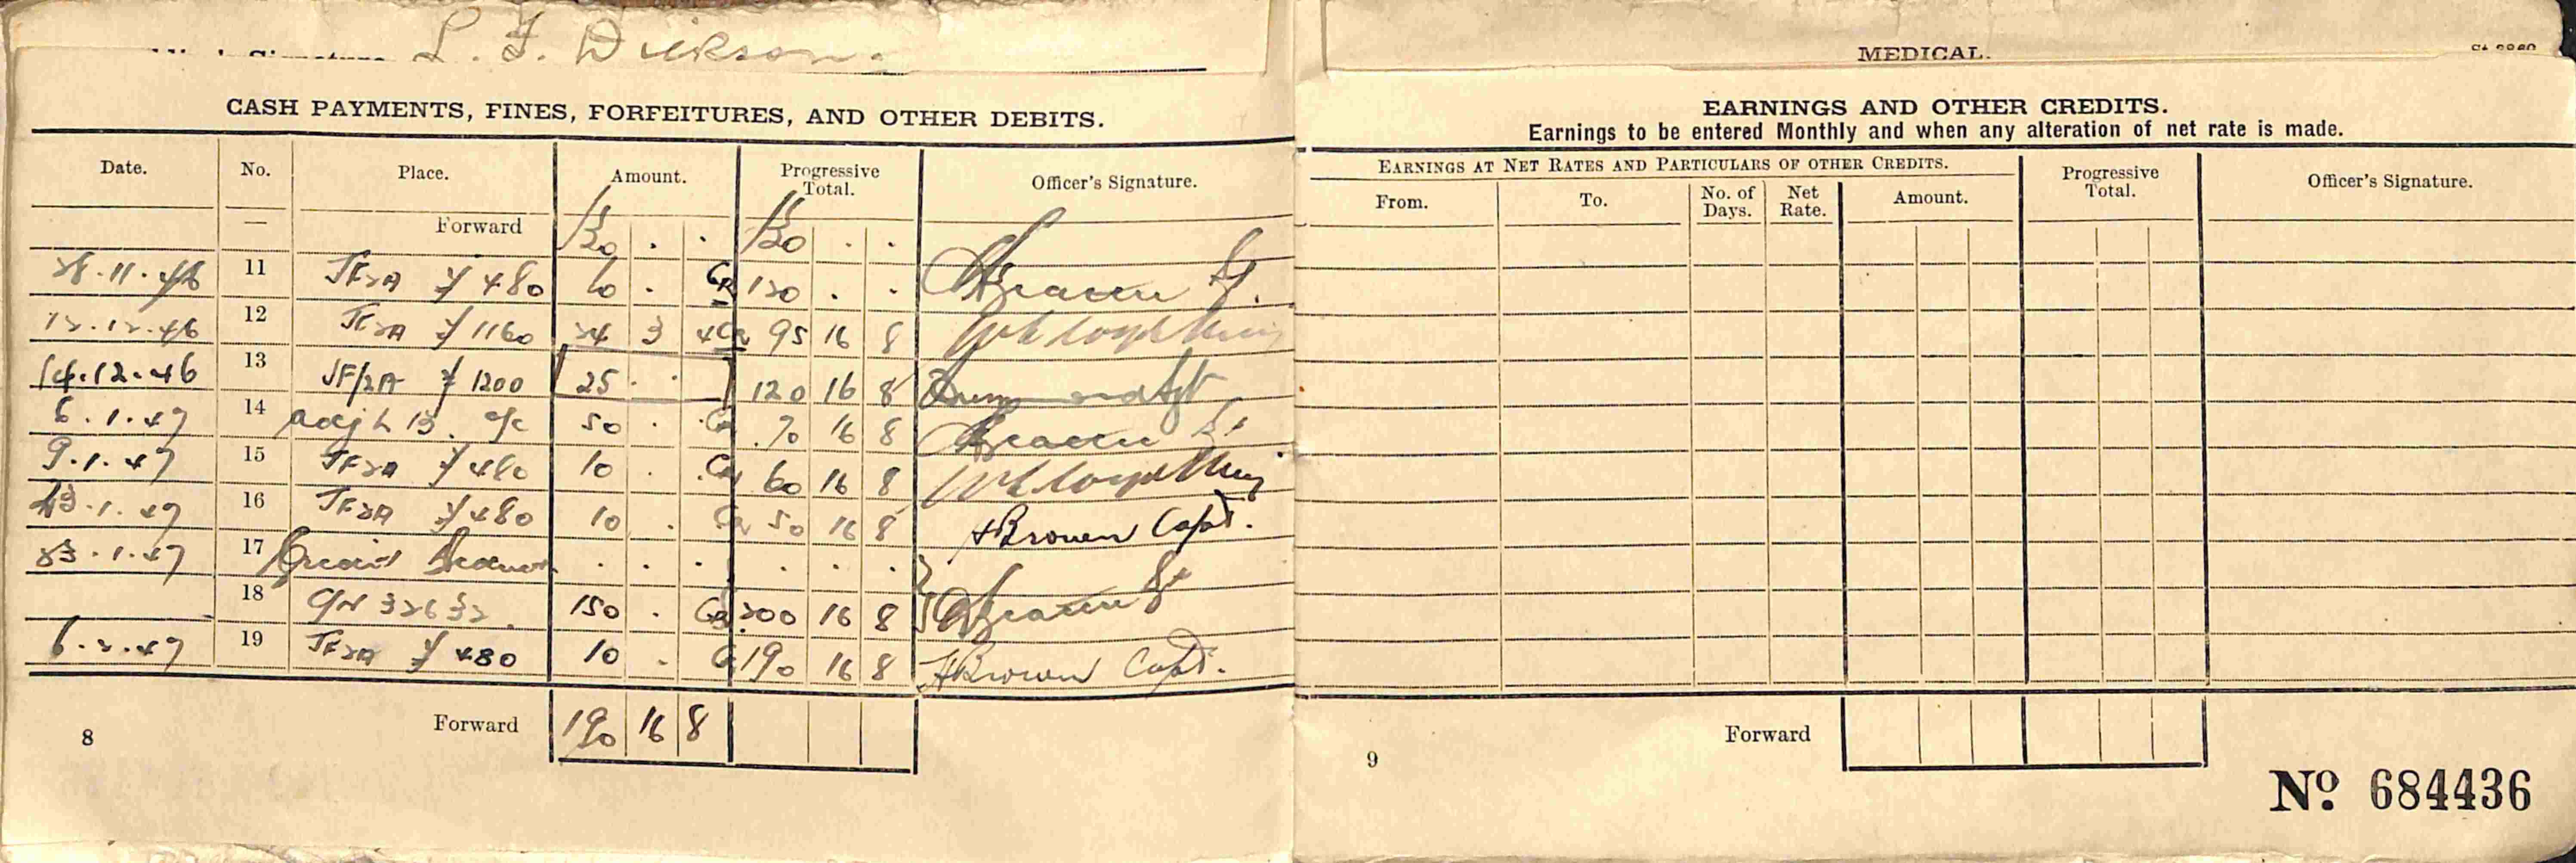 L. F. Dickson.
MEDICAL.
CASH PAYMENTS, FINES, FORFEITURES, AND OTHER DEBITS.
Date. No. Place. Amount. Progressive Total. Officer's Signature.
— Forward 130 . . 130 . .
28.11.46 11 JF2A ¥ 480 10 . CR 120 . .
12.12.46 12 JF2A ¥ 1160 24 3 4 CR 95 16 8
14.12.46 13 JF/2A ¥ 1200 25 . . 120 16 8
6.1.47 14 50 . . CR 70 16 8
9.1.47 15 JF2A ¥ 480 10 . . CR 60 16 8
16 JF2A ¥ 480 10 . CR 50 16 8 HBrown Capt.
23.1.47 17 Credit . . . . . .
18 32632 150 . CR 200 16 8
6.2.47 19 JF2A ¥ 480 10 . CR 190 16 8 HBrown Capt.
Forward 190 16 8
8
EARNINGS AND OTHER CREDITS.
Earnings to be entered Monthly and when any alteration of net rate is made.
EARNINGS AT NET RATES AND PARTICULARS OF OTHER CREDITS. Progressive Total. Officer's Signature.
From. To. No. of Days. Net Rate. Amount.
Forward
9
No. 684436